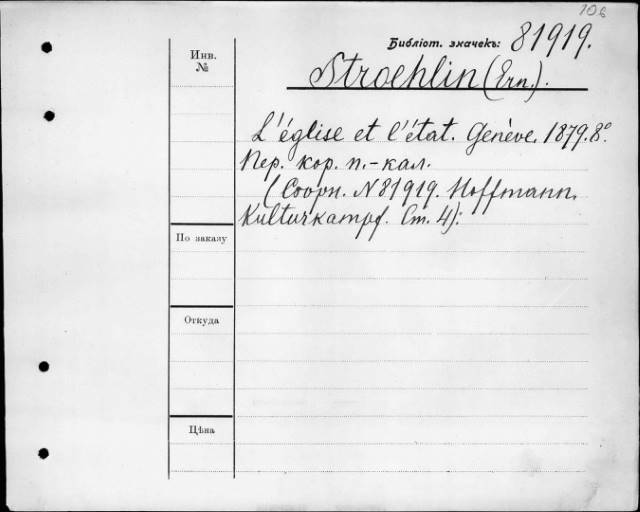 106
Библіот. значекъ: 81919.
Инв.
№
Stroehlin (Ern.).
L'église et l'état. Genève. 1879. 8º.
Пер. кор. п.-кал.
(Сборн. N 81919. Hoffmann.
Kulturkampf. Ст. 4):
По заказу
Откуда
Цѣна